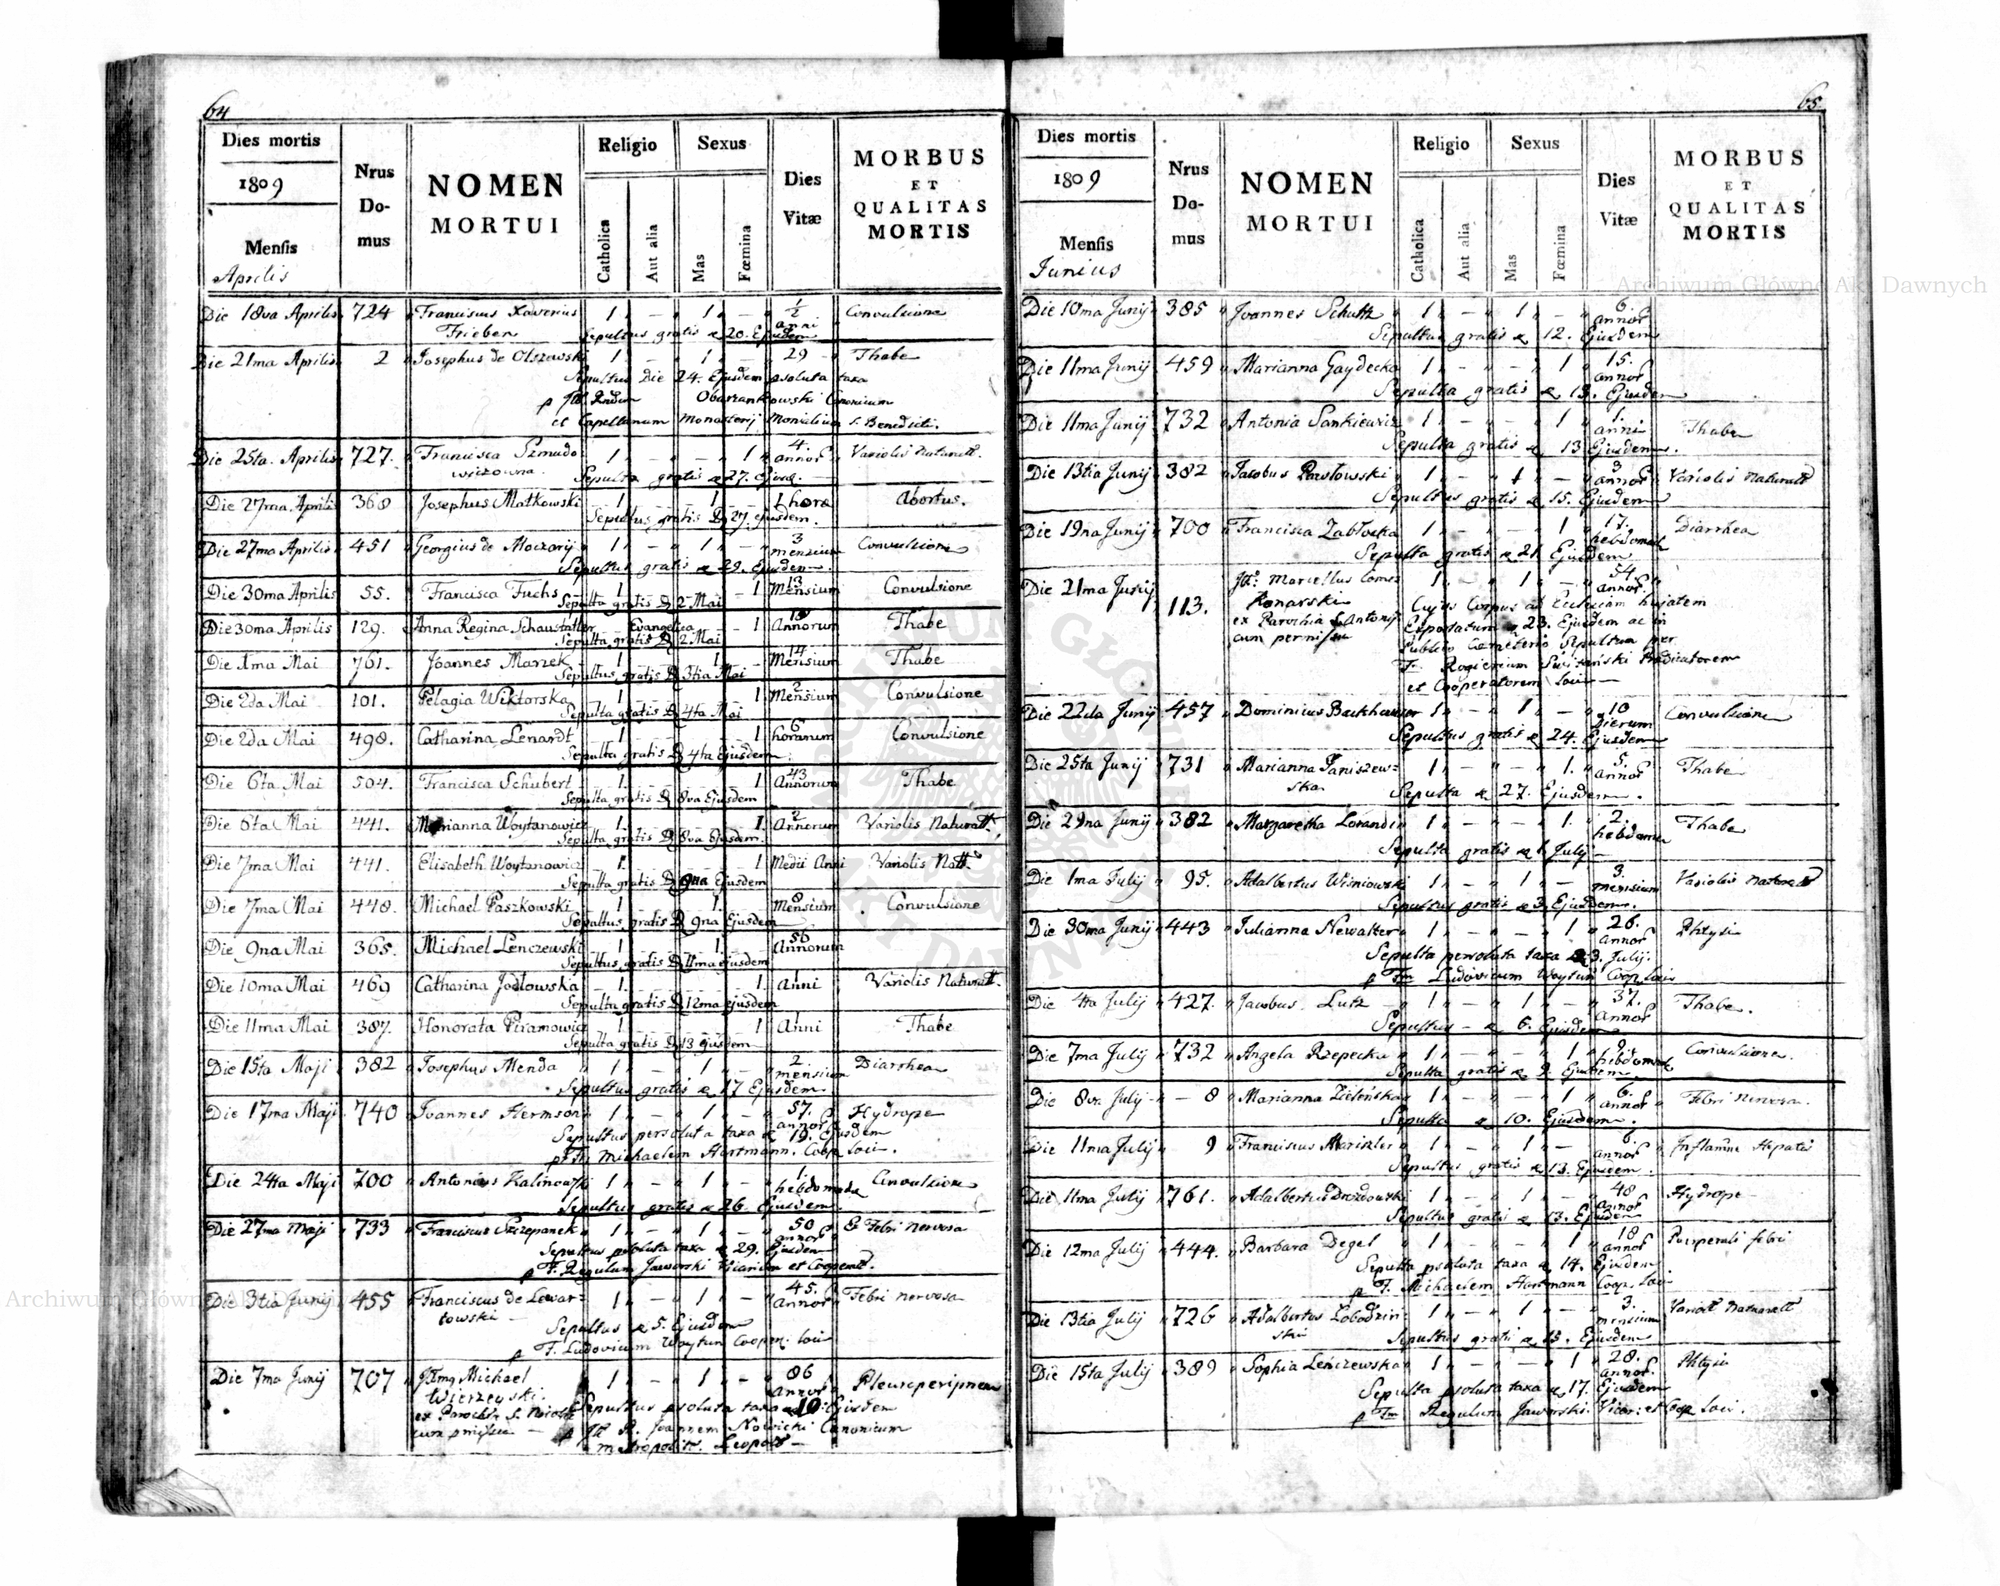 64
Dies mortis
1809
Mensis
Aprilis
Nrus
Do-
mus
NOMEN
MORTUI
Religio
Catholica
Aut alia
Sexus
Mas
Fœmina
Dies
Vitæ
MORBUS
ET
QUALITAS
MORTIS
Die 18va Aprilis 724 Franciscus Xaverius 1 — 1 — ½ anni Convulsione
Frieben Sepultus gratis 20. Ejusdem
Die 21ma Aprilis 2 Josephus de Olszewski 1 — 1 — 29 Thabe
Sepultus Die 24. Ejusdem psoluta taxa
Obarzankowski Canonicum
et Capellanum Monasterij Monialium S. Benedicti.
Die 25ta. Aprilis 727. Francisca Szmudo 1 — — 1 4. annor Variolis Naturall.
wiczowna. Sepulta gratis 27. Ejusd.
Die 27ma Aprilis 368 Josephus Małkowski 1 — 1 — 1 hora Abortus.
Sepultus gratis D 27. ejusdem.
Die 27ma Aprilis 451 Georgius de Moczarij 1 — 1 — 3 mensium Convulsione
Sepultus gratis 29. Ejusdem.
Die 30ma Aprilis 55. Francisca Fuchs 1 — — 1 13 Mensium Convulsione
Sepulta gratis D 2 Mai
Die 30ma Aprilis 129. Anna Regina Schaustatler — Evangelica — 1 Annorum Thabe
Sepulta gratis D 2 Mai
Die 1ma Mai 761. Joannes Marzek 1 — 1 — 14 Mensium Thabe
Sepultus gratis D 3tia Mai
Die 2da Mai 101. Pelagia Wiktorska 1 — — 1 2 Mensium Convulsione
Sepulta gratis D 4ta Mai
Die 2da Mai 498. Catharina Lenardt 1 — — 1 6 horarum Convulsione
Sepulta gratis D 4ta Ejusdem
Die 6ta Mai 504. Francisca Schubert 1. — 1 43 Annorum Thabe
Sepulta gratis D 8va Ejusdem
Die 6ta Mai 441. Marianna Woytanowicz 1. — 1. 2 Annorum Variolis Naturall.
Sepulta gratis D 8va Ejusdem.
Die 7ma Mai 441. Elisabeth Woytanowicz 1. — 1 Medii Anni Variolis Natt.
Sepulta gratis D 9na Ejusdem
Die 7ma Mai 448. Michael Paszkowski 1 — 1. — 8 Mensium Convulsione
Sepultus gratis D 9na Ejusdem
Die 9na Mai 365. Michael Lenczewski 1 — 1. — 56 Annorum
Sepultus gratis D 11ma ejusdem
Die 10ma Mai 469 Catharina Jodłowska 1. — 1. 1 Anni Variolis Naturall.
Sepulta gratis D 12ma ejusdem
Die 11ma Mai 387. Honorata Piramowicz 1. — 1 1 Anni Thabe
Sepulta gratis D 13 ejusdem
Die 15ta Maji 382 Josephus Menda 1 — 1 — 2. mensium Diarrhea
Sepultus gratis 17 Ejusdem
Die 17ma Maji 740 Joannes Hermson 1 — 1 — 57. annor Hydrope
Sepultus persoluta taxa 19. Ejusdem
Michaelem Hartmann. Coop. loci.
Die 24ta Maji 700 Antonius Kalinowski 1 — 1 — 1. hebdomada Convulsione
Sepultus gratis 26. Ejusdem.
Die 27ma Maji 733 Franciscus Szczepanek 1 — 1 — 50 annor Febri nervosa
Sepultus psoluta taxa 29. Ejusdem
p F. Regulum Jaworski Vicarium et Cooperat.
Die 3tia Junij 455 Franciscus de Lewar= 1 — 1 — 45. annor Febri nervosa
towski
Sepultus 5. Ejusdem
p F. Ludovicum Woytun Cooper. loci
Die 7ma Junij 707 Michael 1 — 1 — 86 annor Pleuroperipneu
Wierzeyski.
ex Parochia S. Sepultus psoluta taxa 10. Ejusdem
p Joannem Nowicki Canonicum
Metropolit. Leopol —
65
Dies mortis
1809
Mensis
Junius
Nrus
Do-
mus
NOMEN
MORTUI
Religio
Catholica
Aut alia
Sexus
Mas
Fœmina
Dies
Vitæ
MORBUS
ET
QUALITAS
MORTIS
Die 10ma Junij 385 Joannes Schultz 1 — 1 — 6. annor
Sepultus gratis 12. Ejusdem
Die 11ma Junij 459 Marianna Gaydecka 1 — — 1 15. annor
Sepulta gratis 13. Ejusdem
Die 11ma Junij 732 Antonia Sankiewicz 1 — — 1 1. anni Thabe
Sepulta gratis 13 Ejusdem.
Die 13tia Junij 382 Jacobus Pawłowski 1 — 1 — 3 annor Variolis Naturall
Sepultus gratis 15. Ejusdem
Die 19na Junij 700 Francisca Zabłocka 1 — — 1 17. hebdomad Diarrhea
Sepulta gratis 21. Ejusdem
Die 21ma Junij 113. Marcellus Comes 1 — 1 — 54 annor
Konarski Cujus Corpus ad Ecclesiam hujatem
ex Parochia S. Antonij Exportatum 23. Ejusdem ac in
cum permissu Publico Cæmeterio Sepultum per
Fr. Rogierium Predicatorem
et Cooperatorem loci —
Die 22da Junij 457 Dominicus Backhauser 1 — 1 — 10 Dierum Convulsione
Sepultus gratis 24. Ejusdem
Die 25ta Junij 731 Marianna Janiszew= 1 — — 1. 5. annor Thabe
ska Sepulta 27. Ejusdem.
Die 29na Junij 382 Margaretha Lorandi 1 — — 1. 2. hebdoma Thabe
Sepulta gratis 1. Julij
Die 1ma Julij 95. Adalbertus Wiśniowski 1 — 1 — 3. mensium Variolis Naturall
Sepultus gratis 3. Ejusdem.
Die 30ma Junij 443 Julianna Newalter 1 — — 1 26. annor Phtysi
Sepulta persoluta taxa 3. Julij.
p Fm Ludovicum Woytun Coop. loci
Die 4ta Julij 427. Jacobus Lutz 1 — 1 — 37. annor Thabe.
Sepultus — 6. Ejusdem
Die 7ma Julij 732 Angela Rzepecka 1 — — 1 9. hebdomad Convulsione.
Sepulta gratis 9. Ejusdem
Die 8va Julij 8 Marianna Zielińska 1 — — 1 6. annor Febri nervosa.
Sepulta 10. Ejusdem.
Die 11ma Julij 9 Franciscus Marinler 1 — 1 — 6. annor Inflamae Hepatis
Sepultus gratis 13. Ejusdem.
Die 11ma Julij 761. Adalbertus Drozdowski 1 — 1 — 48 annor Hydrope
Sepultus gratis 13. Ejusdem
Die 12ma Julij 444. Barbara Degel 1 — — 1 18 annor Puerperali febri
Sepulta psoluta taxa 14. Ejusdem
p F. Michaelem Hartmann Coop. loci
Die 13tia Julij 726 Adalbertus Łobodzin= 1 — 1 — 3. mensium Variol Naturall
ski Sepultus gratis 15. Ejusdem
Die 15ta Julij 389 Sophia Lenczewska 1 — — 1 28. annor. Phtysi
Sepulta psoluta taxa 17. Ejusdem
p Fm Regulum Jaworski Vicar: et Coop loci.
Archiwum Główne Akt Dawnych
Archiwum Główne Akt Dawnych
ARCHIWUM GŁÓWNE AKT DAWNYCH